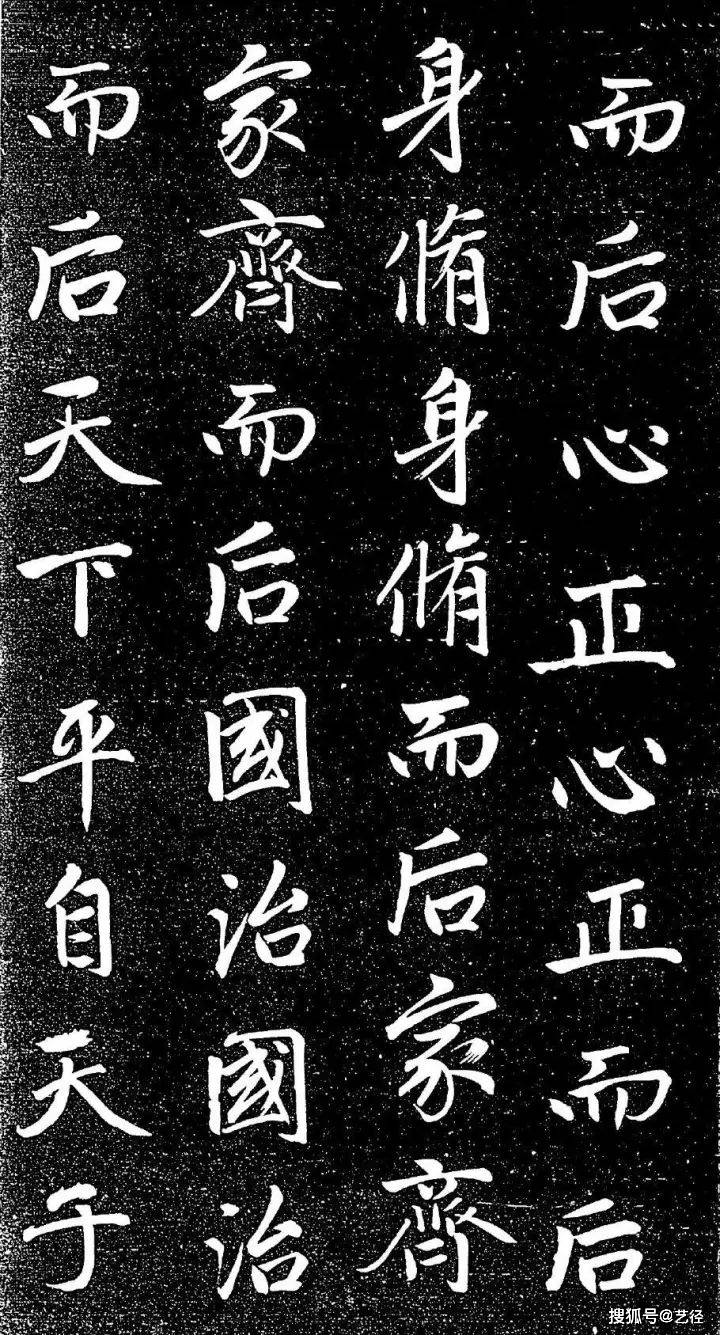 而后心正心正而后
身脩身脩而后家齊
家齊而后國治國治
而后天下平自天子
搜狐号@艺径